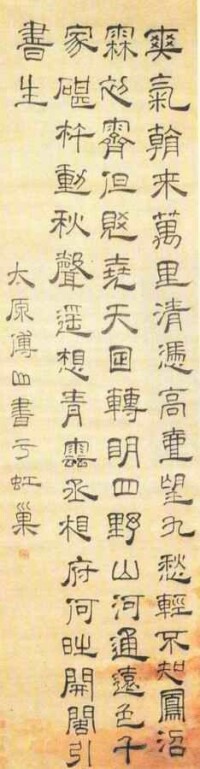 爽氣朝來萬里清憑高壹望九愁輕不知鳳沼
霖初霽但堯天日轉明四野山河通遠色千
家碪杵動秋聲遥想青雲丞相府何時開閣引
書生
太原傅山書于虹巢